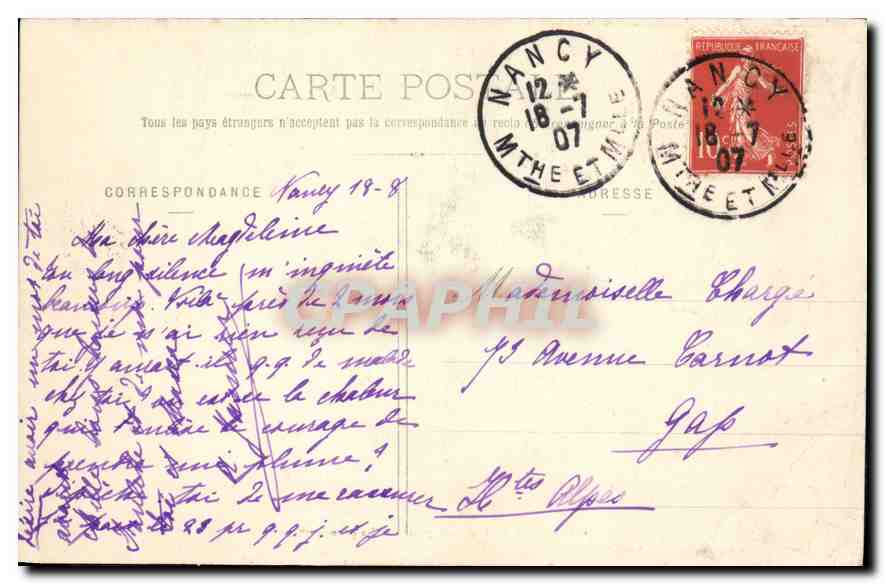 CARTE POSTALE
Tous les pays étrangers n'acceptent pas la correspondance au recto
à la Poste
CORRESPONDANCE
ADRESSE
NANCY
12 *
18 - 7
07
MTHE ET MLLE
REPUBLIQUE FRANÇAISE
10
POSTES
NANCY
12 *
18 - 7
07
MTHE ET MLLE
CPAPHIL
Nancy 18-8
Ma chère Magdeleine
Ton long silence m'inquiète
beaucoup. Voilà près de 2 mois
que je n'ai rien reçu de
toi. Y aurait-il q.q. de malade
chez toi? ou est-ce la chaleur
qui t'enlève le courage de
prendre une plume?
Dépêche toi de me rassurer
le 23 pr q.q. j. et je
avoir un mot de toi
Mademoiselle Chargé
73 Avenue Carnot
Gap
Htes Alpes